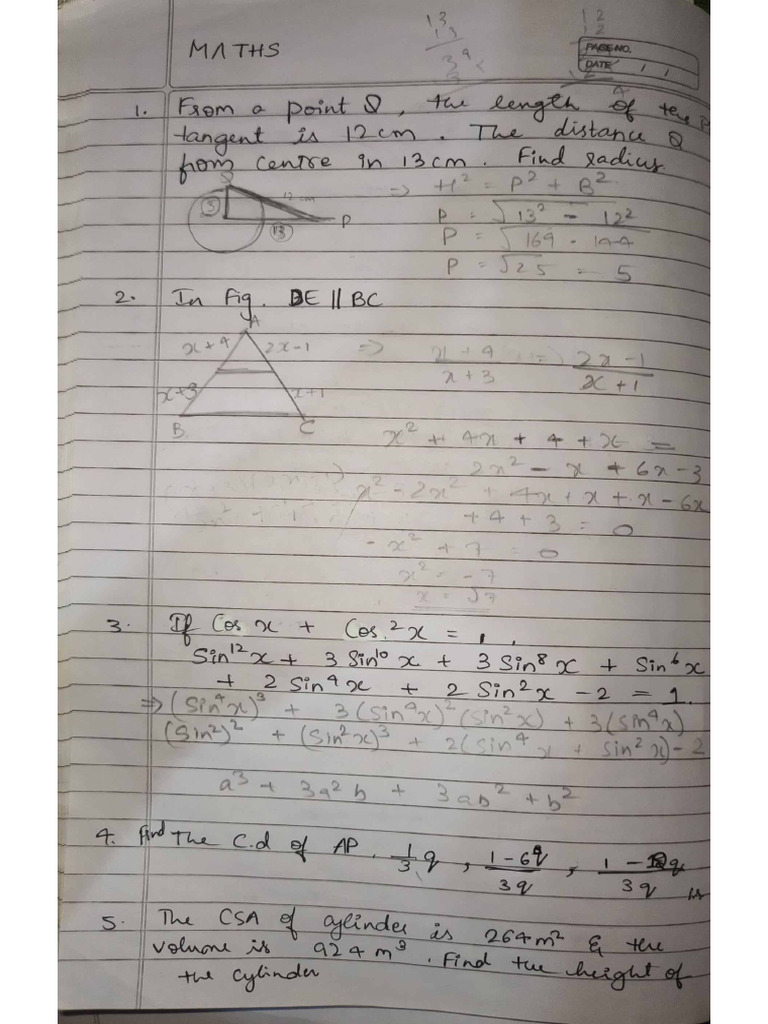 MATHS
PAGE NO.
DATE / /
13
12
1. From a point Q, the length of the
tangent is 12cm. The distance Q
from centre in 13cm. Find radius
=> H² = P² + B²
P = √13² - 12²
P = √169 - 144
P = √25 = 5
12 cm
5
13
P
2. In Fig. DE || BC
A
x+4 2x-1
x+3 x+1
B C
=> x+4 / x+3 = 2x-1 / x+1
x² + 4x + 4 + x =
2x² - x + 6x - 3
x² - 2x² + 4x + x + x - 6x
+ 4 + 3 = 0
- x² + 7 = 0
x² = -7
x = √7
3. If Cos x + Cos² x = 1,
Sin¹² x + 3 Sin¹⁰ x + 3 Sin⁸ x + Sin⁶ x
+ 2 Sin⁴ x + 2 Sin² x - 2 = 1.
=> (Sin⁴x)³ + 3(Sin⁴x)² (Sin²x) + 3(Sin⁴x)
(Sin²)² + (Sin²x)³ + 2(Sin⁴x + Sin²x) - 2
a³ + 3a²b + 3ab² + b²
4. Find The C.d of AP. 1/3 q, 1-6q/3q, 1-12q/3q is
5. The CSA of cylinder is 264m² & the
volume is 924 m³. Find the height of
the cylinder